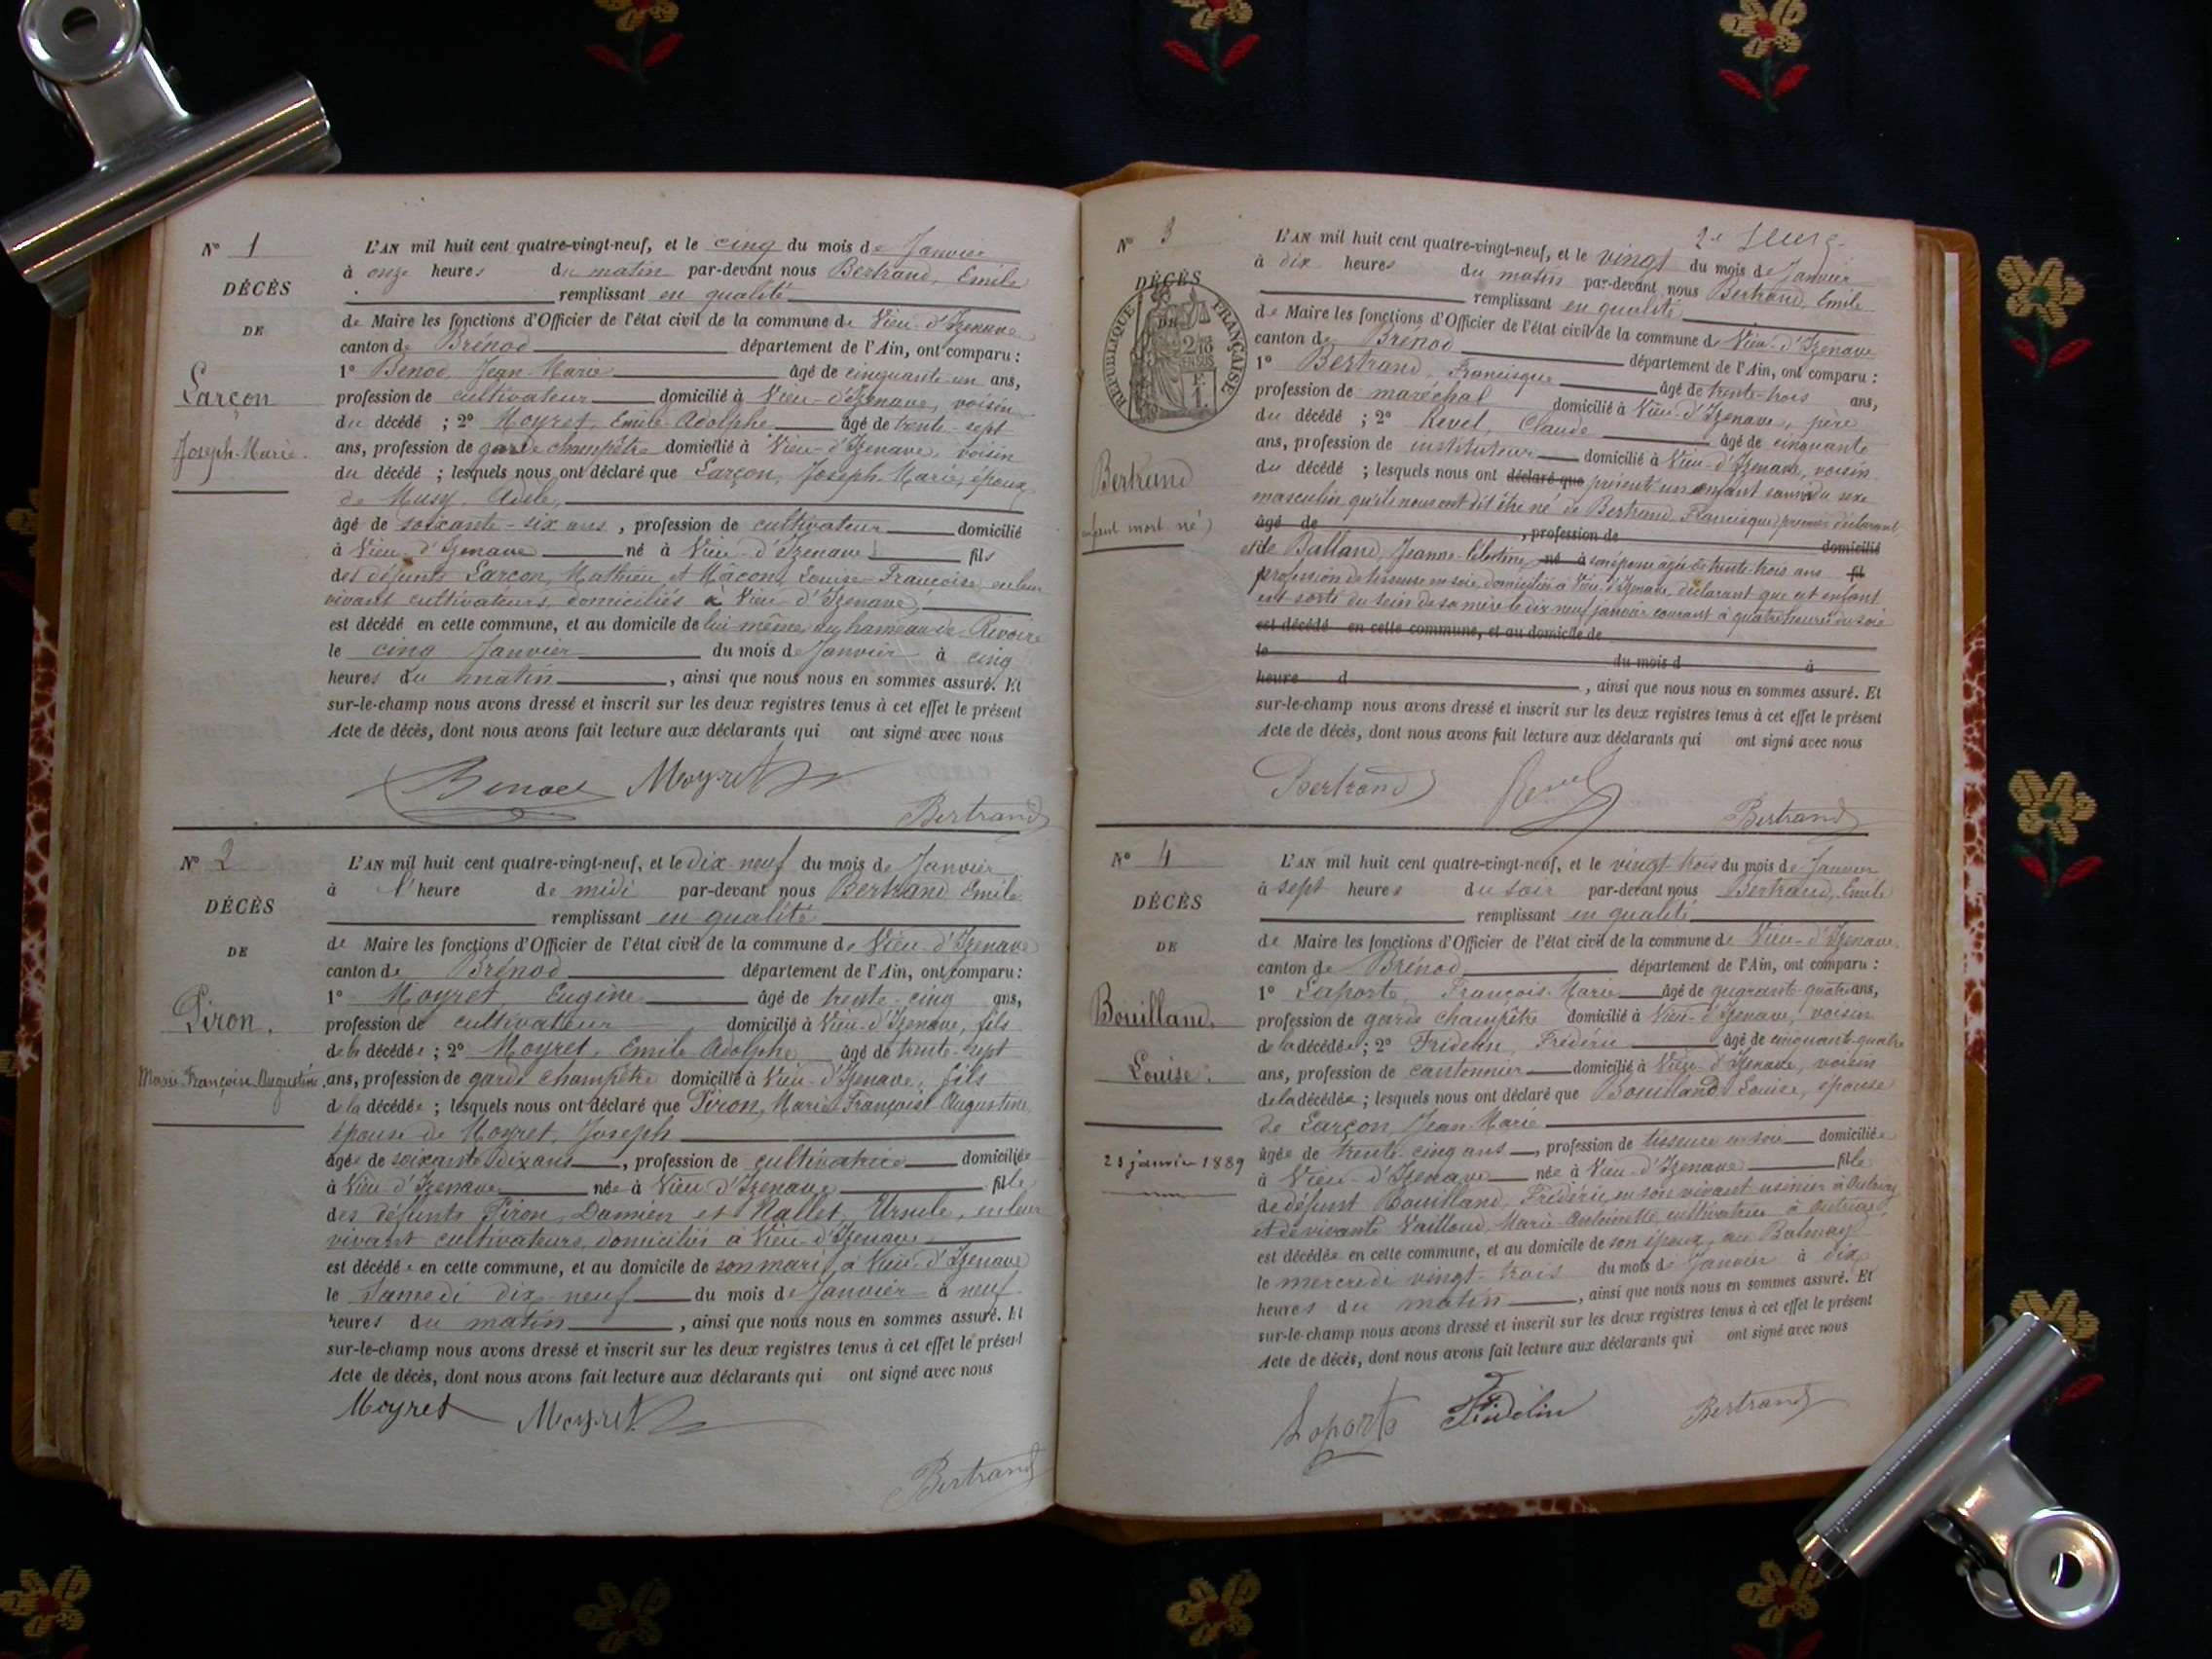 N° 1
DÉCÈS
DE
Larçon
Joseph-Marie.
L'AN mil huit cent quatre-vingt-neuf, et le cinq du mois de Janvier
à onze heures du matin par-devant nous Bertrand, Emile
remplissant en qualité
de Maire les fonctions d'Officier de l'état civil de la commune de Vieu-d'Izenave
canton de Brénod département de l'Ain, ont comparu :
1° Benod, Jean-Marie âgé de cinquante-un ans,
profession de cultivateur domicilié à Vieu-d'Izenave, voisin
du décédé ; 2° Moyret, Emile Adolphe âgé de trente-sept
ans, profession de garde champêtre domicilié à Vieu-d'Izenave, voisin
du décédé ; lesquels nous ont déclaré que Larçon, Joseph-Marie, époux
de Musy, Adèle,
âgé de soixante-six ans, profession de cultivateur domicilié
à Vieu-d'Izenave né à Vieu-d'Izenave fils
des défunts Larçon, Mathieu et Mâcon, Louise-Françoise, en leur
vivant cultivateurs, domiciliés à Vieu-d'Izenave,
est décédé en cette commune, et au domicile de lui-même, au hameau de Rivoire
le cinq Janvier du mois de Janvier à cinq
heures du matin, ainsi que nous nous en sommes assuré. Et
sur-le-champ nous avons dressé et inscrit sur les deux registres tenus à cet effet le présent
Acte de décès, dont nous avons fait lecture aux déclarants qui ont signé avec nous
Benod Moyret
Bertrand
N° 2
DÉCÈS
DE
Piron.
Marie Françoise Augustine.
L'AN mil huit cent quatre-vingt-neuf, et le dix neuf du mois de Janvier
à l'heure de midi par-devant nous Bertrand Emile
remplissant en qualité
de Maire les fonctions d'Officier de l'état civil de la commune de Vieu-d'Izenave
canton de Brénod département de l'Ain, ont comparu :
1° Moyret, Eugène âgé de trente-cinq ans,
profession de cultivateur domicilié à Vieu-d'Izenave, fils
de la décédée ; 2° Moyret, Emile Adolphe âgé de trente-sept
ans, profession de garde champêtre domicilié à Vieu-d'Izenave, fils
de la décédée ; lesquels nous ont déclaré que Piron, Marie Françoise-Augustine,
épouse de Moyret, Joseph
âgée de soixante dix ans, profession de cultivatrice domiciliée
à Vieu-d'Izenave née à Vieu d'Izenave fille
des défunts Piron, Damien et Mallet, Ursule, en leur
vivant cultivateurs, domiciliés à Vieu-d'Izenave
est décédée en cette commune, et au domicile de son mari, à Vieu-d'Izenave
le Samedi dix-neuf du mois de Janvier à neuf
heures du matin, ainsi que nous nous en sommes assuré. Et
sur-le-champ nous avons dressé et inscrit sur les deux registres tenus à cet effet le présent
Acte de décès, dont nous avons fait lecture aux déclarants qui ont signé avec nous
Moyret Moyret
Bertrand
N° 3
DÉCÈS
DE
RÉPUBLIQUE FRANÇAISE
Bertrand
enfant mort né
L'AN mil huit cent quatre-vingt-neuf, et le vingt du mois de Janvier
à dix heures du matin par-devant nous Bertrand, Emile
remplissant en qualité
de Maire les fonctions d'Officier de l'état civil de la commune de Vieu-d'Izenave
canton de Brénod département de l'Ain, ont comparu :
1° Bertrand, Francisque âgé de trente-trois ans,
profession de maréchal domicilié à Vieu-d'Izenave, père
du décédé ; 2° Revel, Claude âgé de cinquante
ans, profession de instituteur domicilié à Vieu-d'Izenave, voisin
du décédé ; lesquels nous ont déclaré que présenté un enfant sans vie du sexe
masculin qu'ils nous ont dit être né de Bertrand, Francisque, premier déclarant,
âgé de , profession de domicilié
et de Balland, Jeanne-Célestine, né à son épouse agée de trente-trois ans fil
profession de tisseuse en soie, domiciliée à Vieu-d'Izenave, déclarant que cet enfant
est sorti du sein de sa mère le dix neuf janvier courant à quatre heures du soir
est décédé en cette commune, et au domicile de
le du mois d à
heure d , ainsi que nous nous en sommes assuré. Et
sur-le-champ nous avons dressé et inscrit sur les deux registres tenus à cet effet le présent
Acte de décès, dont nous avons fait lecture aux déclarants qui ont signé avec nous
Bertrand Revel
Bertrand
N° 4
DÉCÈS
DE
Bouilland.
Louise.
23 janvier 1889
L'AN mil huit cent quatre-vingt-neuf, et le vingt-trois du mois de Janvier
à sept heures du soir par-devant nous Bertrand, Emile
remplissant en qualité
de Maire les fonctions d'Officier de l'état civil de la commune de Vieu-d'Izenave
canton de Brénod département de l'Ain, ont comparu :
1° Laporte, François-Marie âgé de quarante-quatre ans,
profession de garde champêtre domicilié à Vieu-d'Izenave, voisin
de la décédée ; 2° Fridelin, Frédéric âgé de cinquante-quatre
ans, profession de cantonnier domicilié à Vieu-d'Izenave, voisin
de la décédée ; lesquels nous ont déclaré que Bouilland Louise, épouse
de Larçon, Jean-Marie
âgée de trente-cinq ans, profession de tisseuse en soie domiciliée
à Vieu-d'Izenave née à Vieu-d'Izenave fille
de défunt Bouilland, Frédéric, en son vivant usinier à Outriaz
et de vivante Vailloud, Marie Antoinette, cultivatrice à Outriaz,
est décédée en cette commune, et au domicile de son époux, au Balmay
le mercredi vingt-trois du mois de Janvier à dix
heures du matin, ainsi que nous nous en sommes assuré. Et
sur-le-champ nous avons dressé et inscrit sur les deux registres tenus à cet effet le présent
Acte de décès, dont nous avons fait lecture aux déclarants qui ont signé avec nous
Laporte Fridelin Bertrand